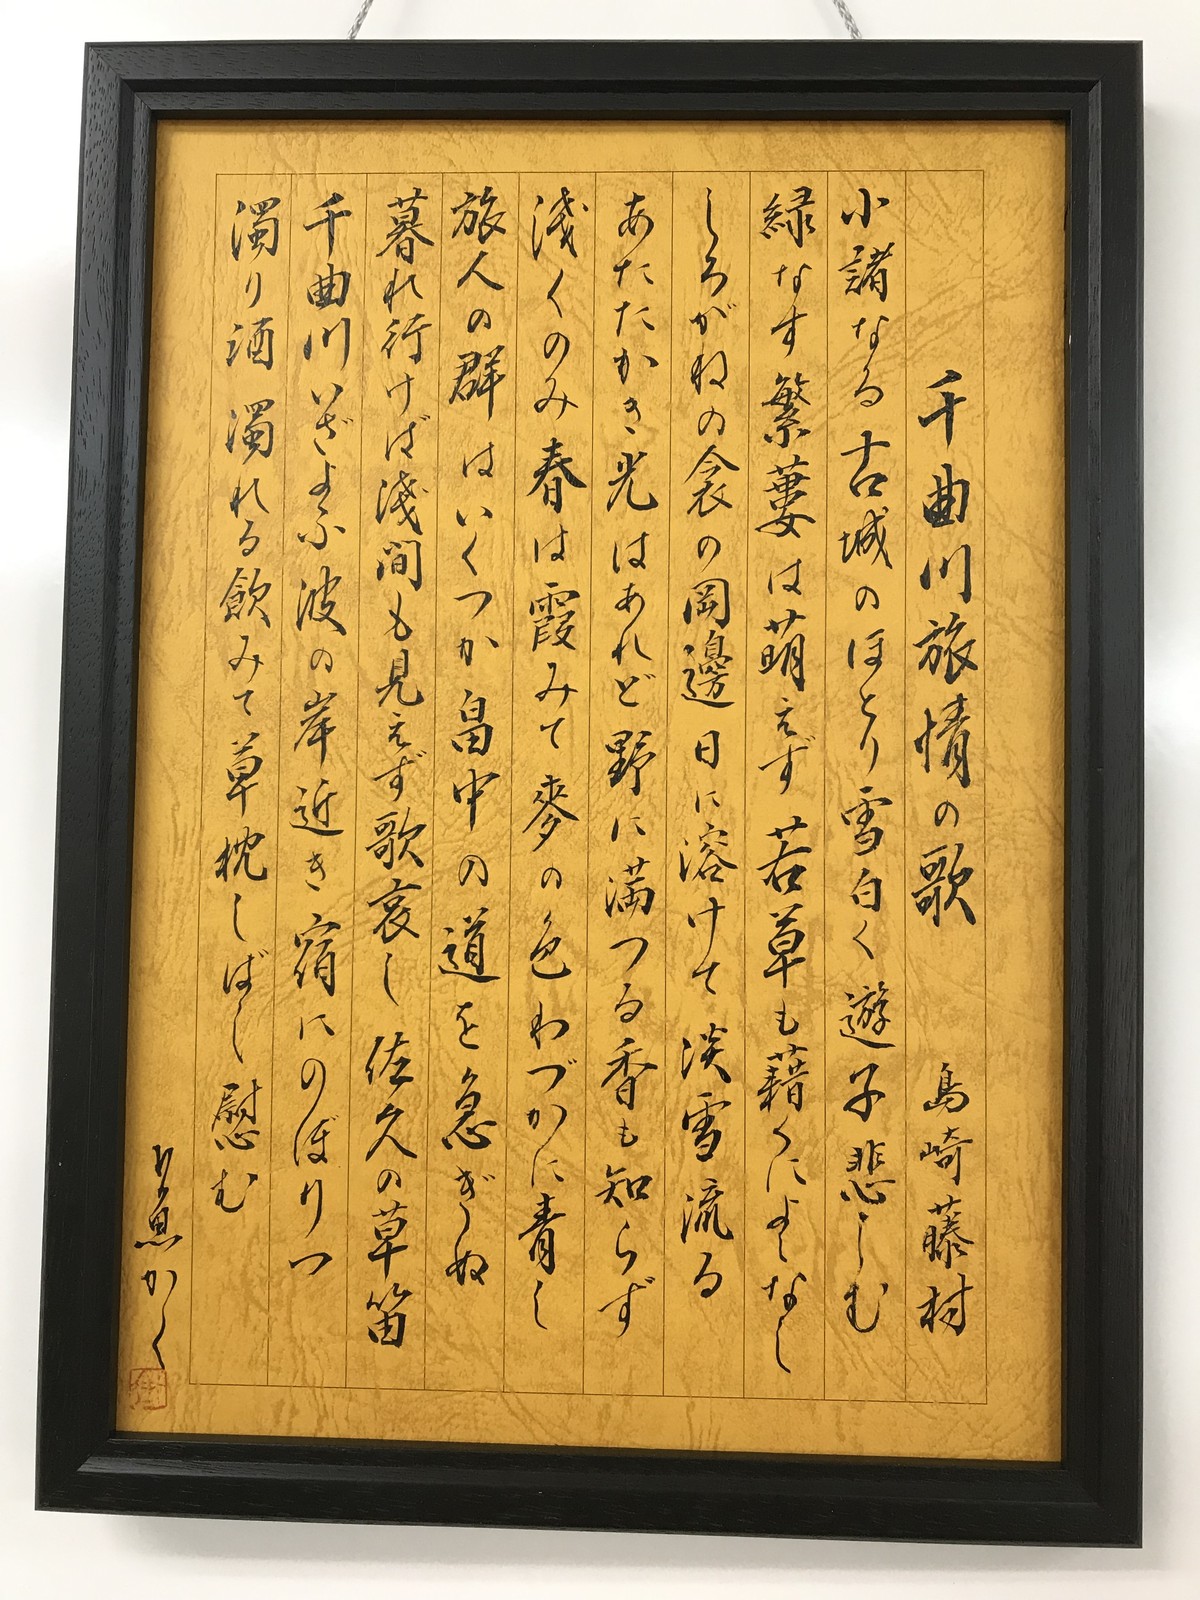 千曲川旅情の歌　島崎藤村
小諸なる古城のほとり雪白く遊子悲しむ
緑なす繁蔞は萌えず若草も藉くによしなし
しろがねの衾の岡邊日に溶けて淡雪流る
あたたかき光はあれど野に満つる香も知らず
淺くのみ春は霞みて麥の色わづかに青し
旅人の群はいくつか畠中の道を急ぎぬ
暮れ行けば淺間も見えず歌哀し佐久の草笛
千曲川いざよふ波の岸近き宿にのぼりつ
濁り酒濁れる飲みて草枕しばし慰む
かく